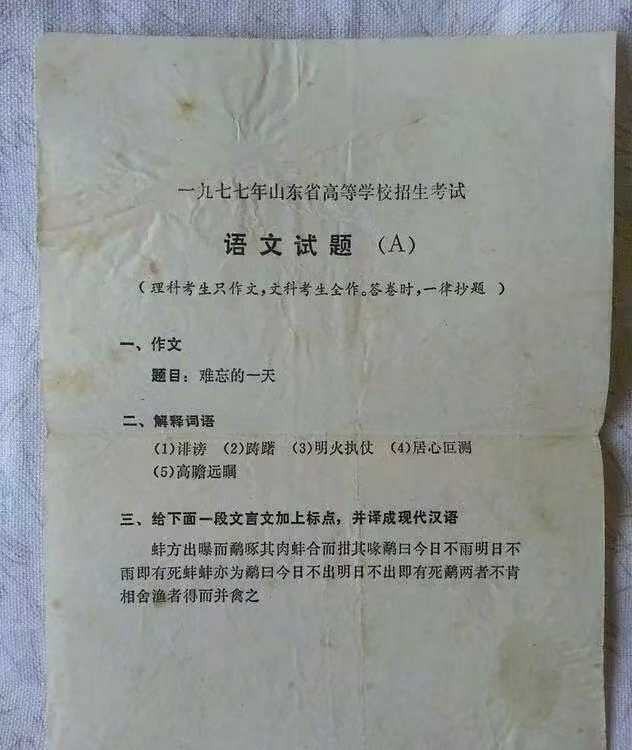 一九七七年山东省高等学校招生考试
语文试题（A）
（理科考生只作文，文科考生全作。答卷时，一律抄题）
一、作文
题目：难忘的一天
二、解释词语
(1)诽谤 (2)踌躇 (3)明火执仗 (4)居心叵测
(5)高瞻远瞩
三、给下面一段文言文加上标点，并译成现代汉语
蚌方出曝而鹬啄其肉蚌合而拑其喙鹬曰今日不雨明日不
雨即有死蚌蚌亦为鹬曰今日不出明日不出即有死鹬两者不肯
相舍渔者得而并禽之